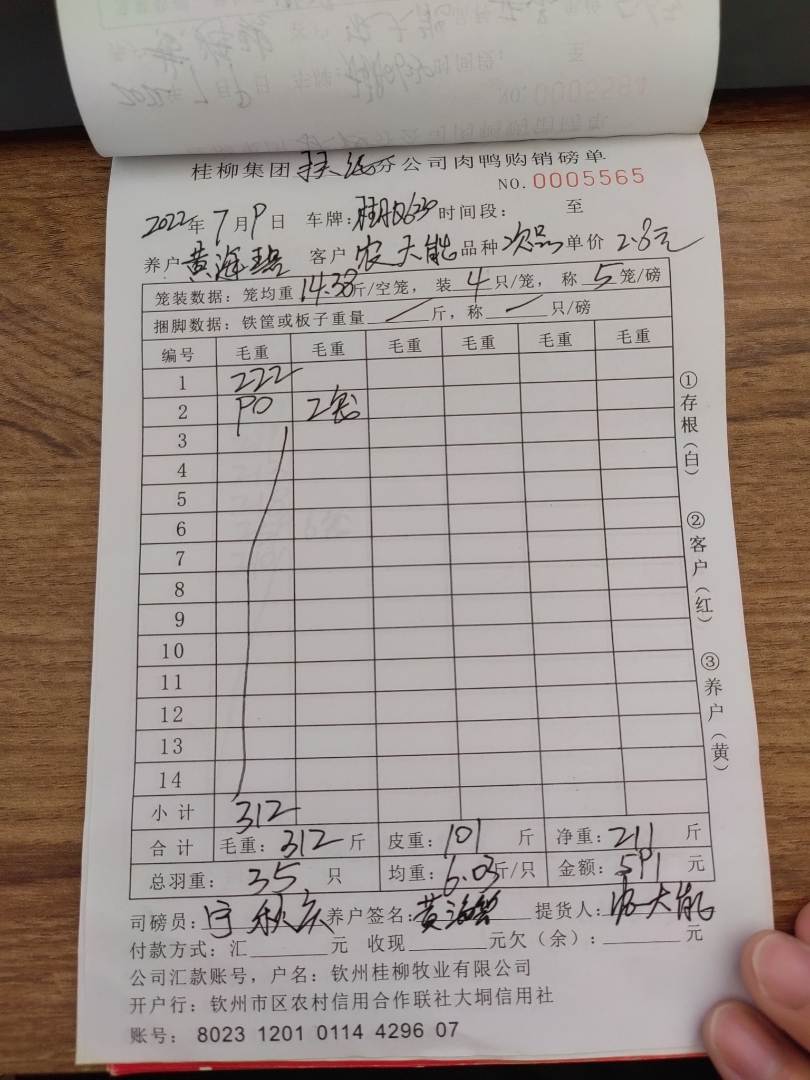 桂柳集团 分公司肉鸭购销磅单
NO.0005565
2022年7月9日 车牌: 时间段: 至
养户 黄海碧 客户 农大能 品种 次品 单价 2.8元
笼装数据:笼均重14.38斤/空笼,装4只/笼,称5笼/磅
捆脚数据:铁筐或板子重量/斤,称/只/磅
编号 毛重 毛重 毛重 毛重 毛重 毛重
1 222
2 90 2笼
3
4
5
6
7
8
9
10
11
12
13
14
小计 312
合计 毛重:312斤 皮重:101斤 净重:211斤
总羽重:35只 均重:6.03斤/只 金额:591元
司磅员: 养户签名:黄海碧 提货人:农大能
付款方式:汇 元 收现 元欠(余): 元
公司汇款账号,户名:钦州桂柳牧业有限公司
开户行:钦州市区农村信用合作联社大垌信用社
账号:8023 1201 0114 4296 07
①存根(白)
②客户(红)
③养户(黄)